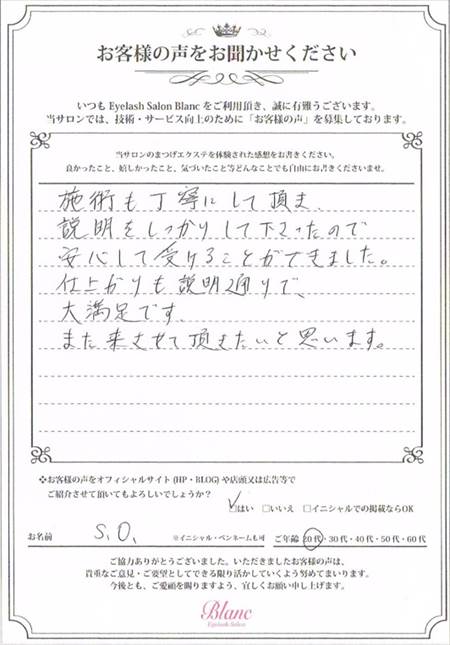 お客様の声をお聞かせください
いつも Eyelash Salon Blanc をご利用頂き、誠に有難うございます。
当サロンでは、技術・サービス向上のために「お客様の声」を募集しております。
当サロンのまつげエクステを体験された感想をお書きください。
良かったこと、嬉しかったこと、気づいたこと等どんなことでも自由にお書きくださいませ。
施術も丁寧にして頂ま、
説明をしっかりして下さったので
安心して受けることができました。
仕上がりも説明通りで、
大満足です、
また来させて頂きたいと思います。
❖お客様の声をオフィシャルサイト(HP・BLOG)や店頭又は広告等で
ご紹介させて頂いてもよろしいでしょうか?
☑はい □いいえ □イニシャルでの掲載ならOK
お名前 S.O. ※イニシャル・ペンネームも可 ご年齢 20代・30代・40代・50代・60代
ご協力ありがとうございました。いただきましたお客様の声は、
貴重なご意見・ご要望としてできる限り活かしていくよう努めてまいります。
今後とも、ご愛顧を賜りますよう、宜しくお願い申し上げます。
Blanc
Eyelash Salon